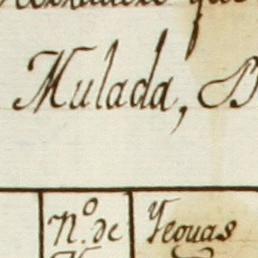 que
Mulada,
N.º de Yeguas